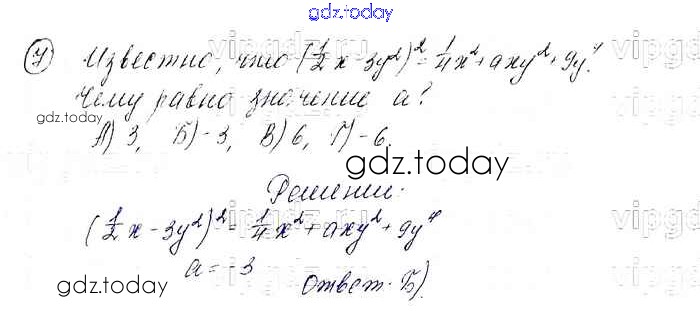 gdz.today
7) Известно, что (1/2 x - 3y²)² = 1/4 x² + axy² + 9y⁴.
Чему равно значение a?
А) 3, Б) -3, В) 6, Г) -6.
gdz.today
gdz.today
Решение:
(1/2 x - 3y²)² = 1/4 x² + axy² + 9y⁴
a = -3
Ответ: Б).
gdz.today
gdz.today